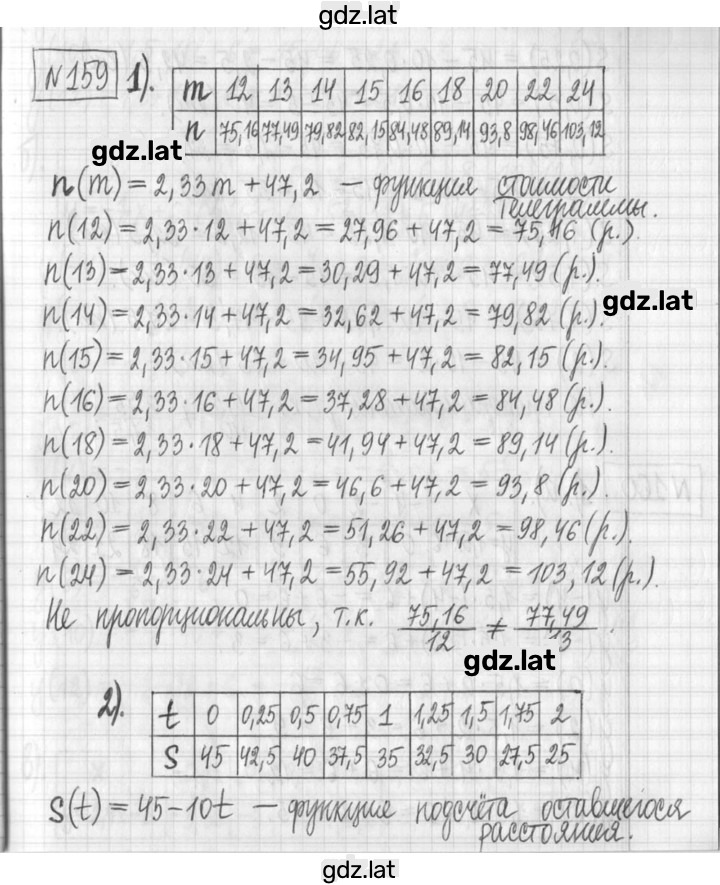 gdz.lat
№159 1).
m 12 13 14 15 16 18 20 22 24
n 75,16 77,49 79,82 82,15 84,48 89,14 93,8 98,46 103,12
gdz.lat
n(m) = 2,33m + 47,2 — функция стоимости
телеграммы.
n(12) = 2,33·12 + 47,2 = 27,96 + 47,2 = 75,16 (р.).
n(13) = 2,33·13 + 47,2 = 30,29 + 47,2 = 77,49 (р.).
gdz.lat
n(14) = 2,33·14 + 47,2 = 32,62 + 47,2 = 79,82 (р.).
n(15) = 2,33·15 + 47,2 = 34,95 + 47,2 = 82,15 (р.).
n(16) = 2,33·16 + 47,2 = 37,28 + 47,2 = 84,48 (р.).
n(18) = 2,33·18 + 47,2 = 41,94 + 47,2 = 89,14 (р.).
n(20) = 2,33·20 + 47,2 = 46,6 + 47,2 = 93,8 (р.).
n(22) = 2,33·22 + 47,2 = 51,26 + 47,2 = 98,46 (р.).
n(24) = 2,33·24 + 47,2 = 55,92 + 47,2 = 103,12 (р.).
Не пропорциональны, т.к. 75,16/12 ≠ 77,49/13.
gdz.lat
2).
t 0 0,25 0,5 0,75 1 1,25 1,5 1,75 2
S 45 42,5 40 37,5 35 32,5 30 27,5 25
S(t) = 45 - 10t — функция подсчёта оставшегося
расстояния.
gdz.lat